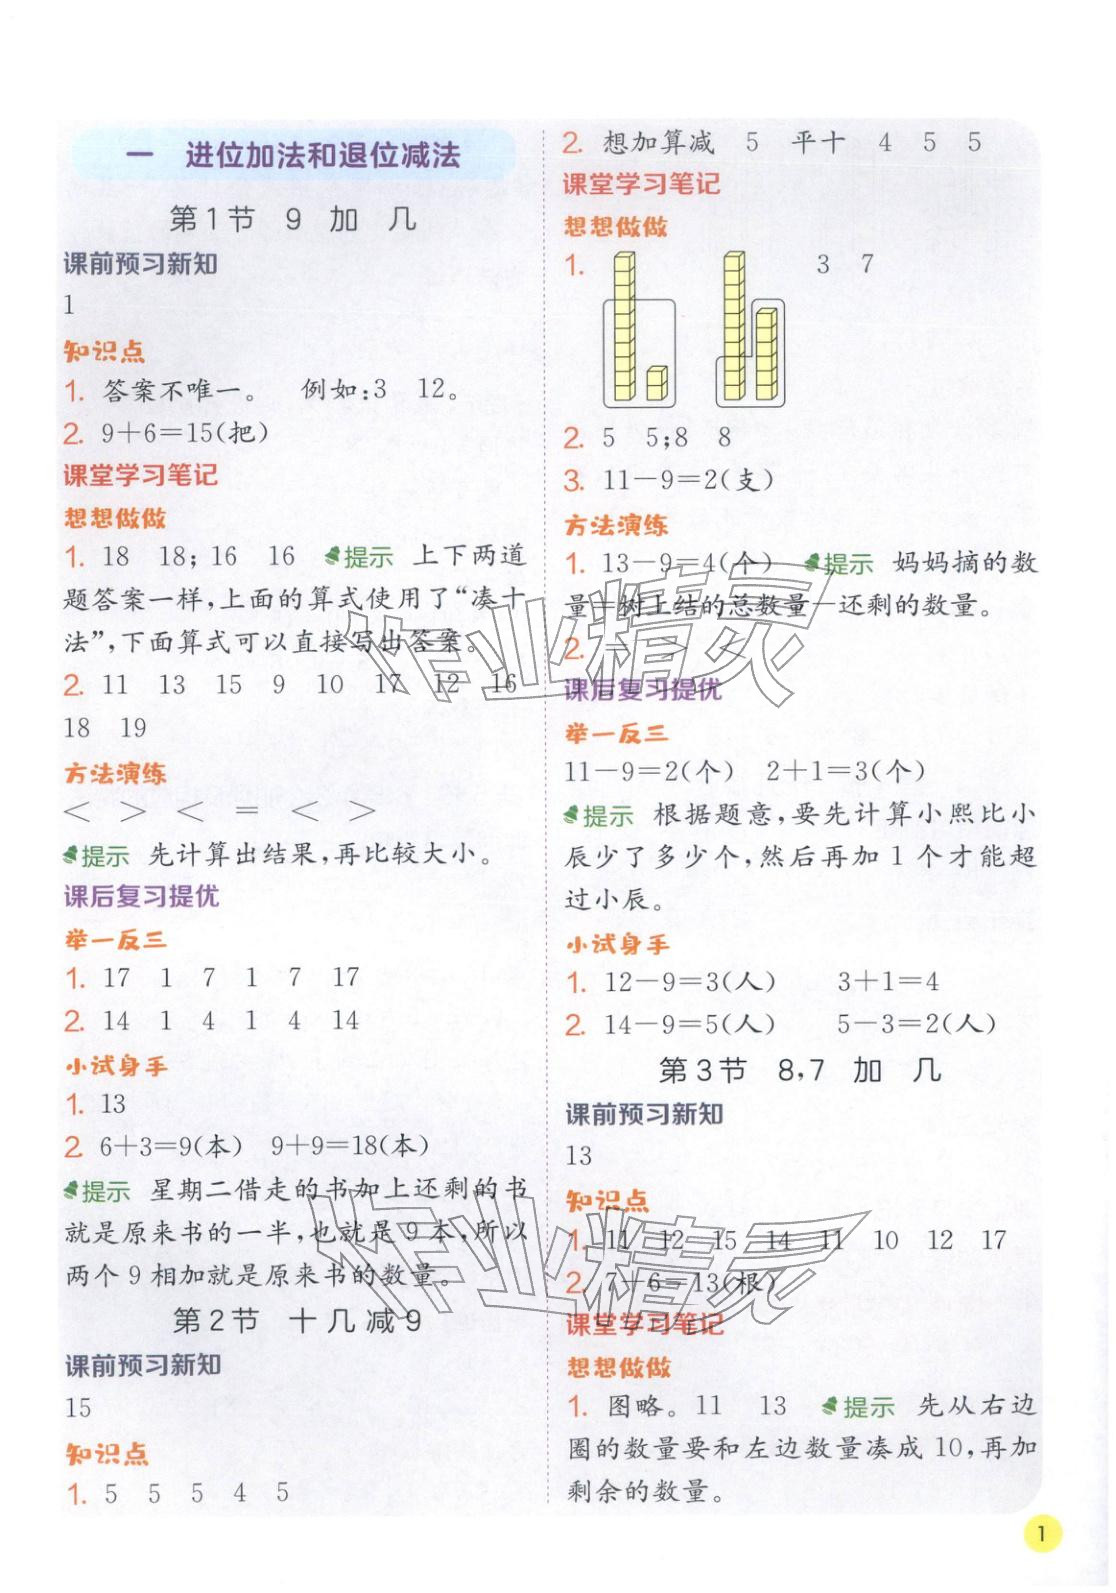 一 进位加法和退位减法
第1节 9 加 几
课前预习新知
1
知识点
1. 答案不唯一。 例如:3 12。
2. 9+6=15(把)
课堂学习笔记
想想做做
1. 18 18; 16 16 提示 上下两道
题答案一样,上面的算式使用了“凑十
法”,下面算式可以直接写出答案。
2. 11 13 15 9 10 17 12 16
18 19
方法演练
< > < = < >
提示 先计算出结果,再比较大小。
课后复习提优
举一反三
1. 17 1 7 1 7 17
2. 14 1 4 1 4 14
小试身手
1. 13
2. 6+3=9(本) 9+9=18(本)
提示 星期二借走的书加上还剩的书
就是原来书的一半,也就是9本,所以
两个9相加就是原来书的数量。
第2节 十几减9
课前预习新知
15
知识点
1. 5 5 5 4 5
2. 想加算减 5 平十 4 5 5
课堂学习笔记
想想做做
1. 3 7
2. 5 5;8 8
3. 11-9=2(支)
方法演练
1. 13-9=4(个) 提示 妈妈摘的数
量=树上结的总数量-还剩的数量。
2. = > <
课后复习提优
举一反三
11-9=2(个) 2+1=3(个)
提示 根据题意,要先计算小熙比小
辰少了多少个,然后再加1个才能超
过小辰。
小试身手
1. 12-9=3(人) 3+1=4
2. 14-9=5(人) 5-3=2(人)
第3节 8,7 加 几
课前预习新知
13
知识点
1. 11 12 15 14 11 10 12 17
2. 7+6=13(根)
课堂学习笔记
想想做做
1. 图略。11 13 提示 先从右边
圈的数量要和左边数量凑成10,再加
剩余的数量。
1
作业精灵
作业精灵